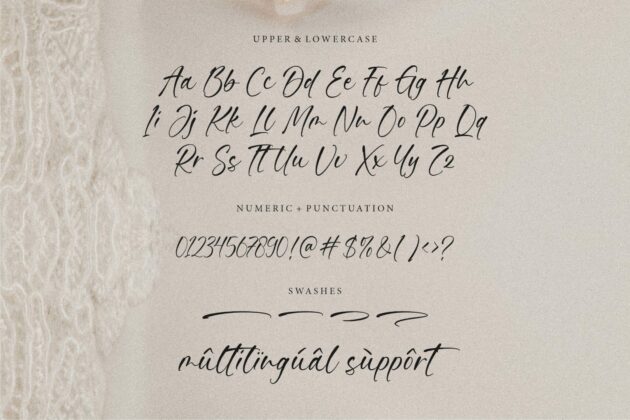 UPPER & LOWERCASE
Aa Bb Cc Dd Ee Ff Gg Hh
Ii Jj Kk Ll Mm Nn Oo Pp Qq
Rr Ss Tt Uu Vv Xx Yy Zz
NUMERIC + PUNCTUATION
01234567890!@#$%&()<>?
SWASHES
mûltilïngúâl sùppôrt